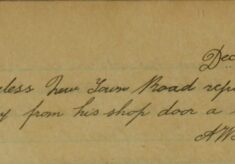 Dec
less New Town Road rep
y from his shop door a
AW